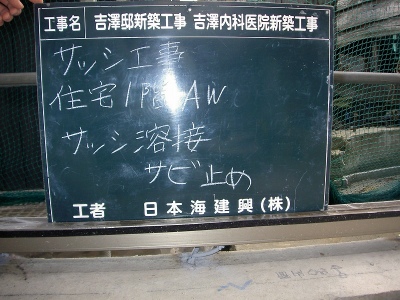 工事名 吉澤邸新築工事 吉澤内科医院新築工事
サッシ工事
住宅1階AW
サッシ溶接
サビ止め
工者 日本海建興(株)